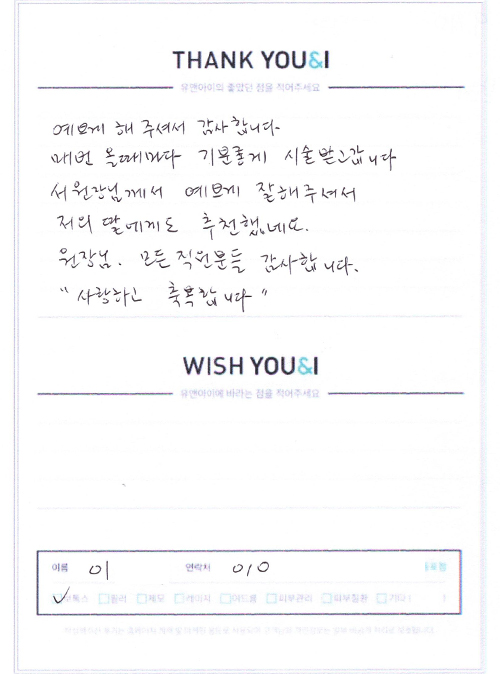 THANK YOU&I
유앤아이의 좋았던 점을 적어주세요
예쁘게 해 주셔서 감사합니다.
매번 올때마다 기분좋게 시술받고갑니다
서원장님께서 예쁘게 잘해주셔서
저의 딸에게도 추천했네요.
원장님. 모든직원분들 감사합니다.
"사랑하고 축복합니다"
WISH YOU&I
유앤아이에 바라는 점을 적어주세요
이름 이 연락처 010
보톡스 필러 제모 레이저 여드름 피부관리 피부질환 기타 ( )